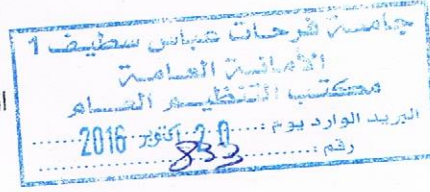 جامعة فرحات عباس سطيف 1
الأمانة العامة
مكتب التنظيم العام
البريد الوارد يوم : 20 أكتوبر 2016
رقم : 833